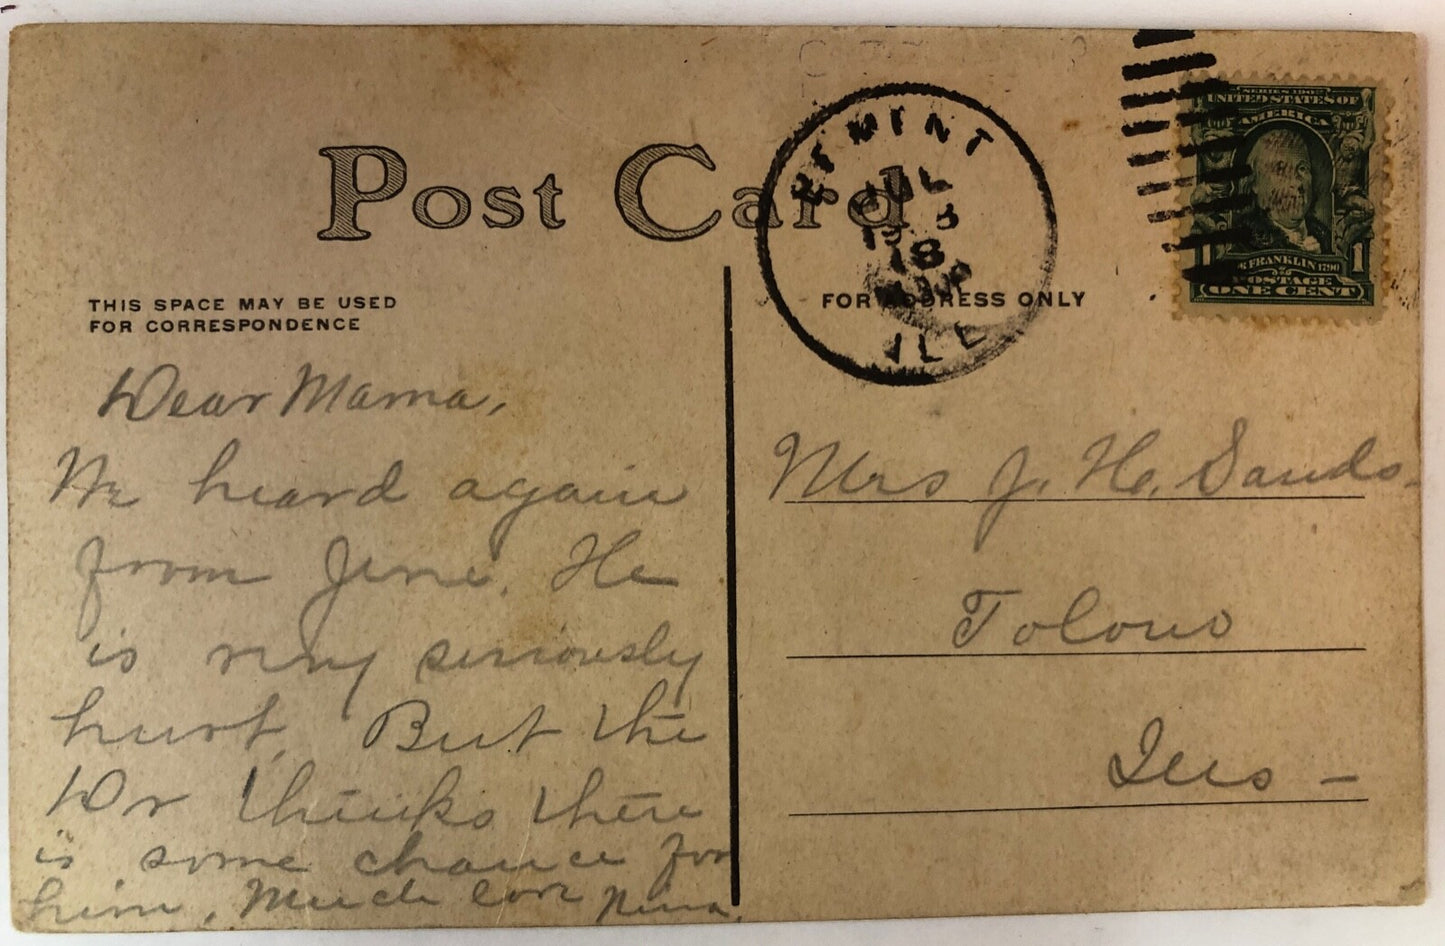 Post Card
THIS SPACE MAY BE USED
FOR CORRESPONDENCE
Dear Mama,
We heard again
from Jene. He
is very seriously
hurt. But the
Dr thinks there
is some chance for
him. Much love Nina.
BEMENT
JUL
18
ILL
SERIES 1902
UNITED STATES OF
AMERICA
FRANKLIN 1790
1 POSTAGE 1
ONE CENT
FOR ADDRESS ONLY
Mrs J. H. Sands.
Tolono
Ills -